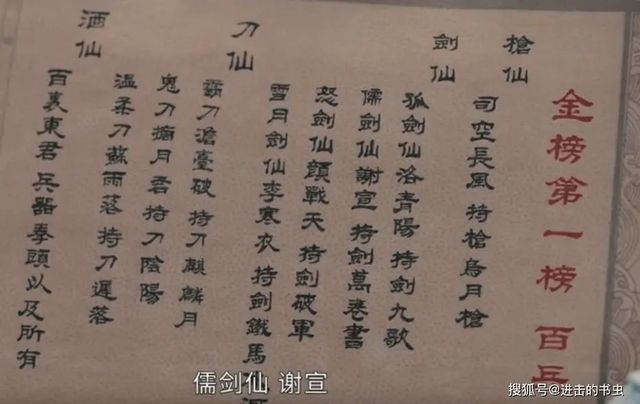 金榜第一榜 百兵
槍仙
司空長風 持槍烏月槍
劍仙
孤劍仙洛青陽 持劍九歌
儒劍仙謝宣 持劍萬卷書
怒劍仙顏戰天 持劍破軍
雪月劍仙李寒衣 持劍鐵馬
刀仙
霸刀澹臺破 持刀麒麟月
鬼刀摘月君 持刀陰陽
温柔刀蘇雨落 持刀遲落
酒仙
百裏東君 兵器拳頭以及所有
儒剑仙 谢宣
搜狐号@进击的书虫